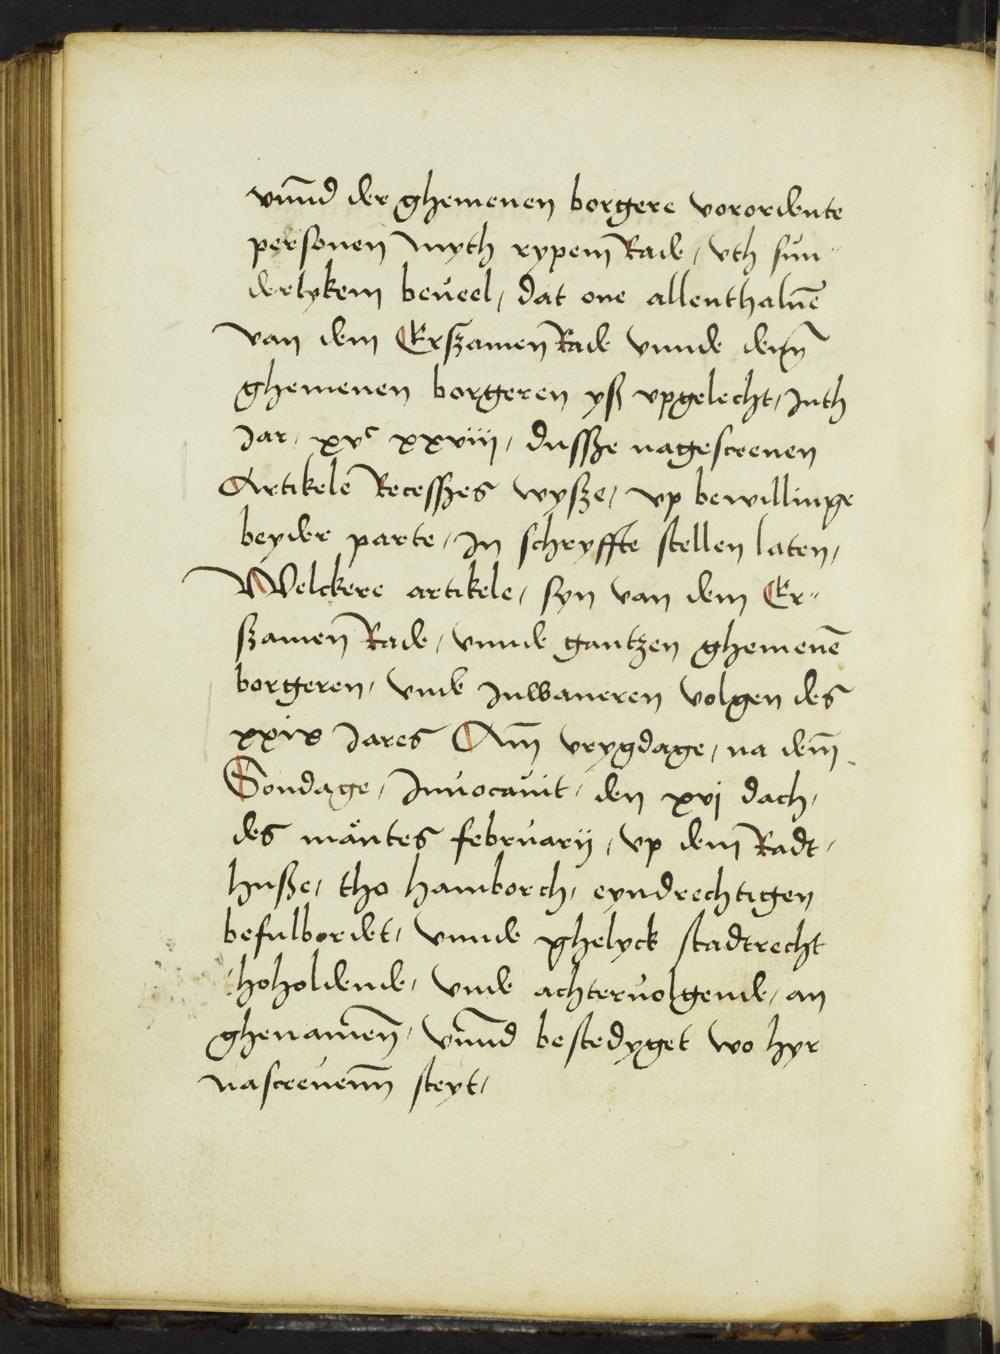 vnnd der ghemenen borgere verordente
personen myth rypem Rade, vth sun-
derlykem beueel, dat one allenthaluē
van dem Erszamen Rade vnnde denn̄
ghemenen borgeren yß vpgelecht, Inth
Jar, xvc xxviij, dussze nagescreuen
Artikele Recesszes wysze, vp bewillinge
beyder parte, In schryffte stellen laten,
Welckere artikele, syn van dem Er-
szamen Rade, vnnde gantzen ghemenē
borgeren, vnde Inwaneren volgen des
xxix Jares Am̄ vrygdage, na dem̄
Sondage, Inuocauit, den xvj dach,
des måntes februarij, vp dem Radt,
husze, tho hamborch, eyndrechtigen
befulbordet, vnnde ghelyck stadtrecht
thoholdende, vnde achteruolgende, an
ghenamen̄, vn̄nd bestedyget wo hyr
nascreuenn̄ steyt,